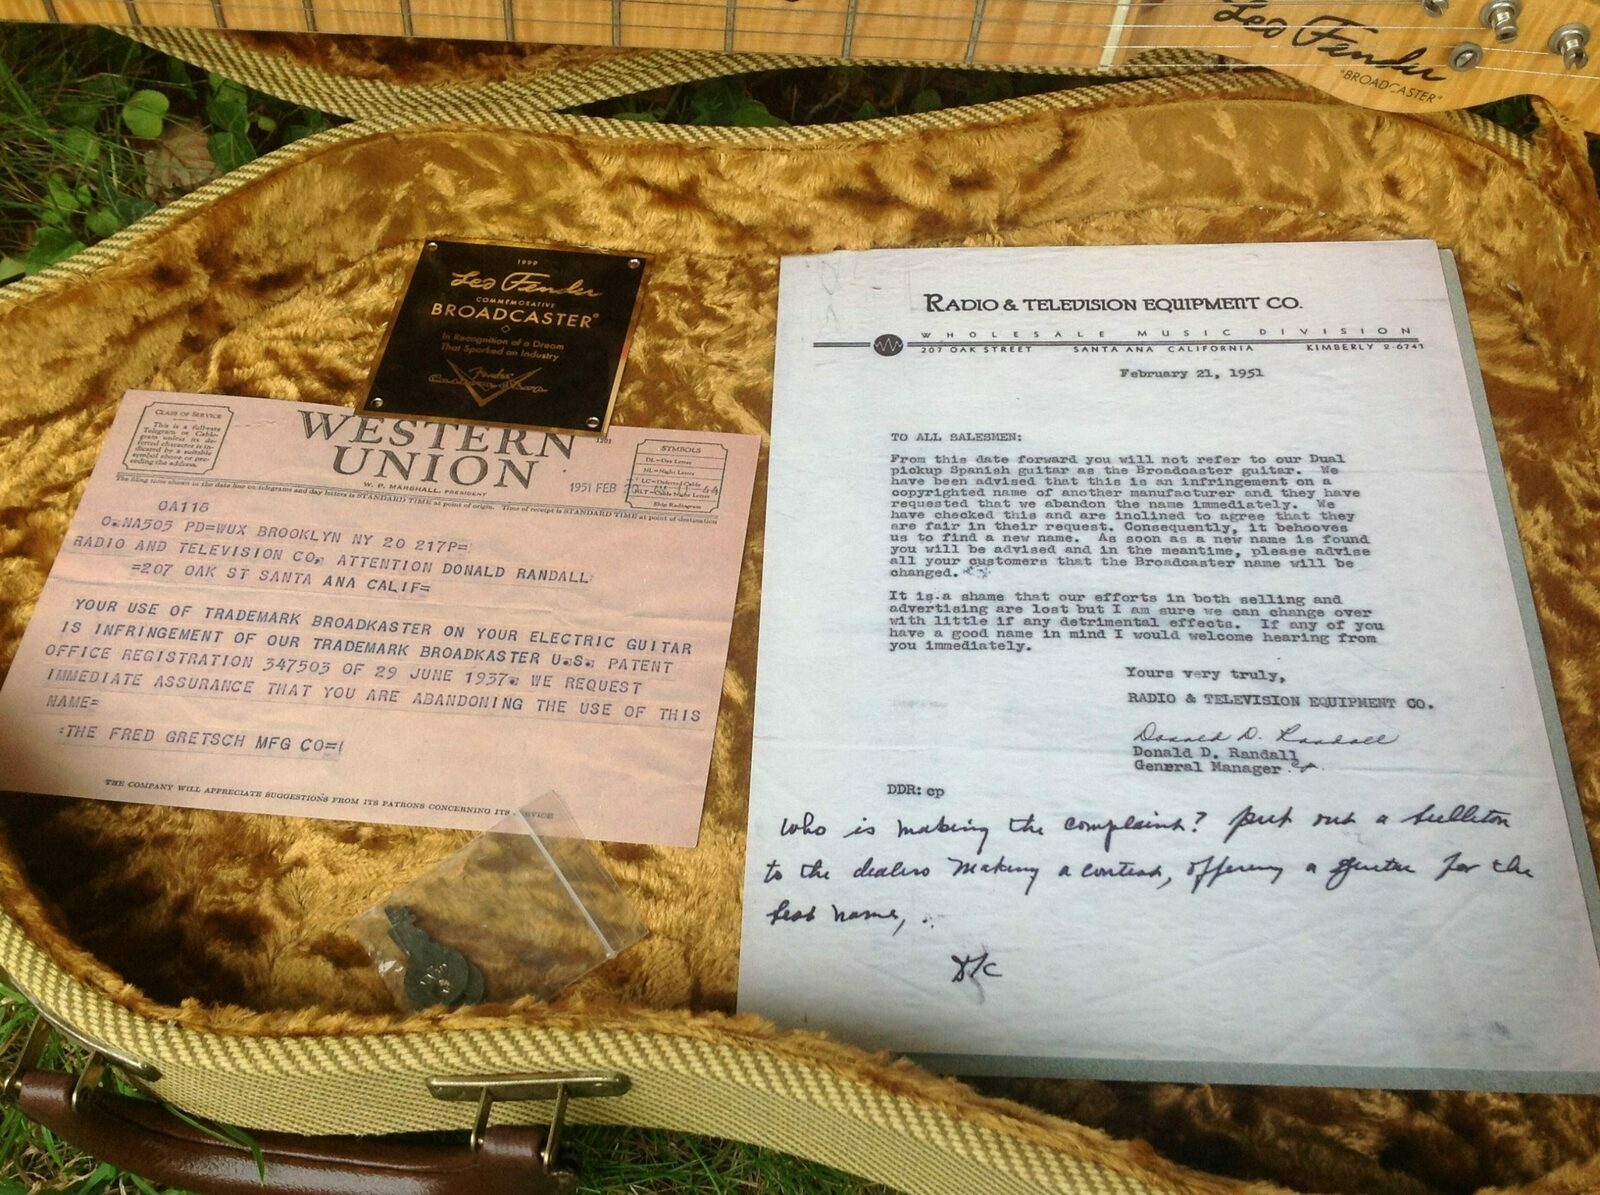 Leo Fender
"BROADCASTER"
1999
Leo Fender
COMMEMORATIVE
BROADCASTER®
In Recognition of a Dream
That Sparked an Industry
Fender
Custom Shop
CLASS OF SERVICE
This is a full-rate
Telegram or Cable-
gram unless its de-
ferred character is in-
dicated by a suitable
symbol above or pre-
ceding the address.
WESTERN
UNION
1201
W. P. MARSHALL, PRESIDENT
1951 FEB
SYMBOLS
DL=Day Letter
NL=Night Letter
LC=Deferred Cable
NLT=Cable Night Letter
Ship Radiogram
The filing time shown in the date line on telegrams and day letters is STANDARD TIME at point of origin. Time of receipt is STANDARD TIME at point of destination
OA118
O.NA505 PD=WUX BROOKLYN NY 20 217P=
RADIO AND TELEVISION CO, ATTENTION DONALD RANDALL
=207 OAK ST SANTA ANA CALIF=
YOUR USE OF TRADEMARK BROADKASTER ON YOUR ELECTRIC GUITAR
IS INFRINGEMENT OF OUR TRADEMARK BROADKASTER U.S. PATENT
OFFICE REGISTRATION 347503 OF 29 JUNE 1937. WE REQUEST
IMMEDIATE ASSURANCE THAT YOU ARE ABANDONING THE USE OF THIS
NAME=
:THE FRED GRETSCH MFG CO=!
THE COMPANY WILL APPRECIATE SUGGESTIONS FROM ITS PATRONS CONCERNING ITS SERVICE
RADIO & TELEVISION EQUIPMENT CO.
WHOLESALE MUSIC DIVISION
207 OAK STREET SANTA ANA CALIFORNIA KIMBERLY 2-6741
February 21, 1951
TO ALL SALESMEN:
From this date forward you will not refer to our Dual
pickup Spanish guitar as the Broadcaster guitar. We
have been advised that this is an infringement on a
copyrighted name of another manufacturer and they have
requested that we abandon the name immediately. We
have checked this and are inclined to agree that they
are fair in their request. Consequently, it behooves
us to find a new name. As soon as a new name is found
you will be advised and in the meantime, please advise
all your customers that the Broadcaster name will be
changed.
It is a shame that our efforts in both selling and
advertising are lost but I am sure we can change over
with little if any detrimental effects. If any of you
have a good name in mind I would welcome hearing from
you immediately.
Yours very truly,
RADIO & TELEVISION EQUIPMENT CO.
Donald D. Randall
Donald D. Randall
General Manager
DDR:cp
Who is making the complaint? put out a bulliton
to the dealers making a contest, offering a guitar for the
best name,